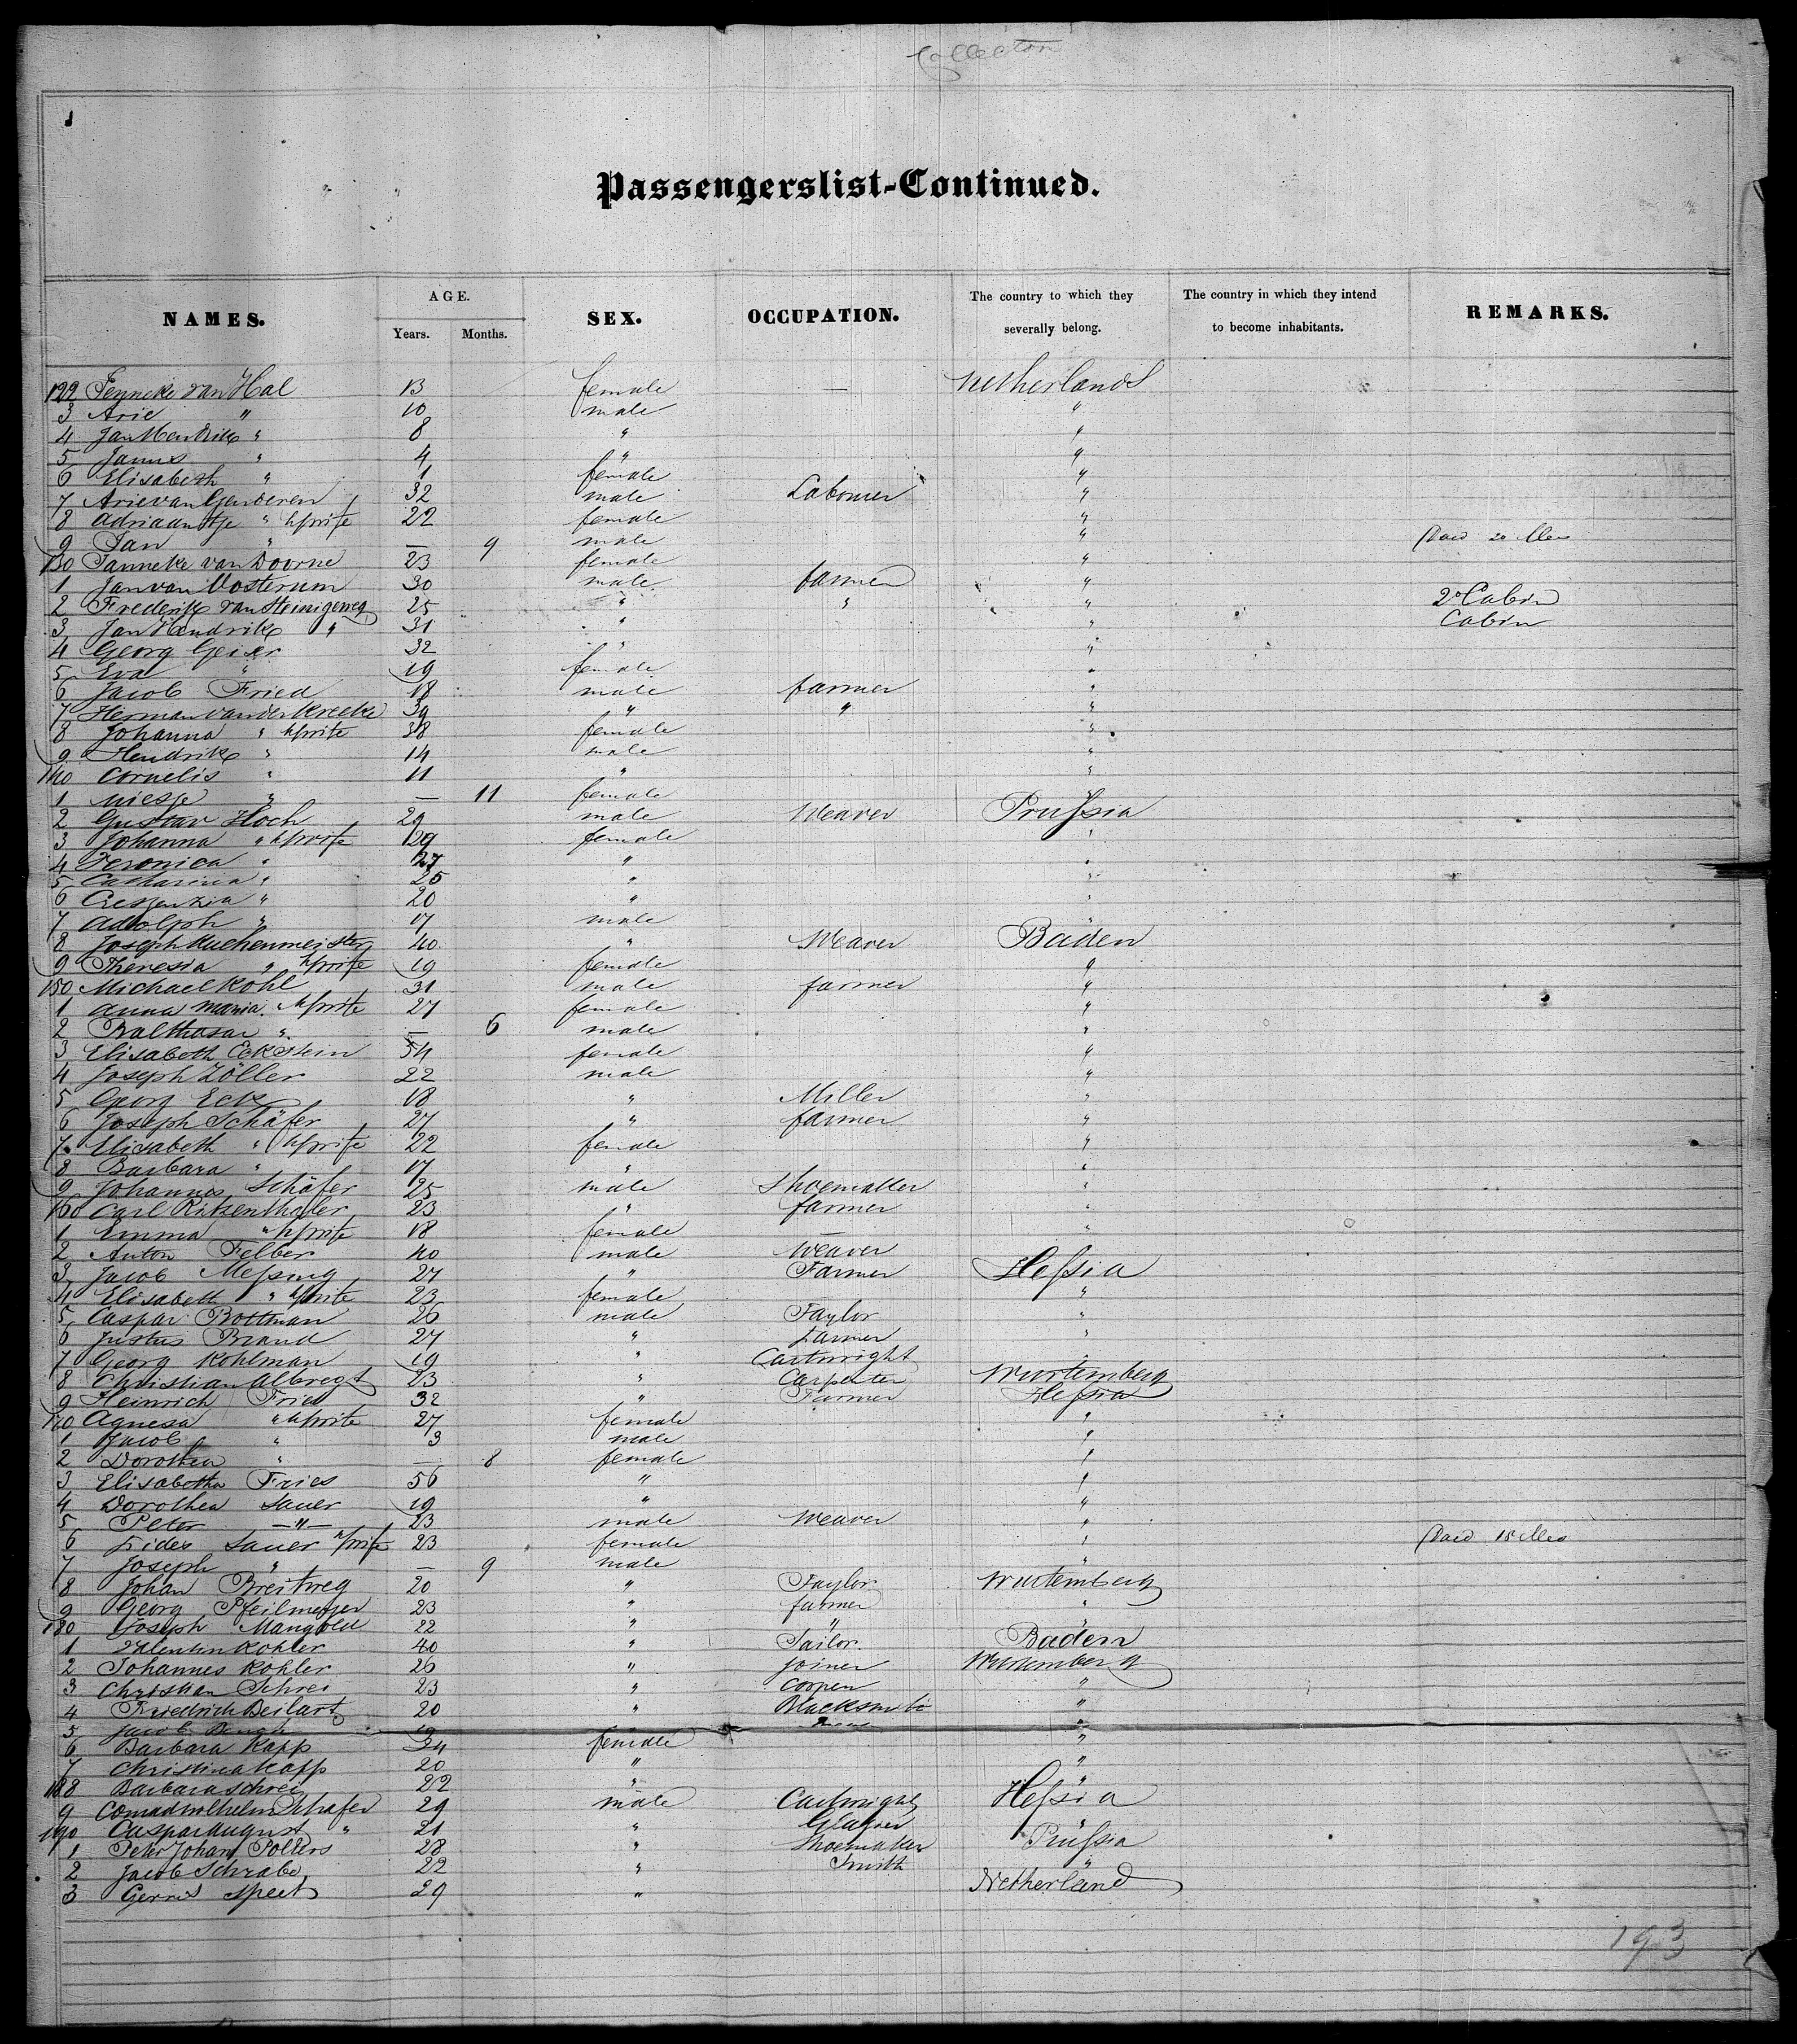 Collector
Passengerslist-Continued.
NAMES. AGE. Years. Months. SEX. OCCUPATION. The country to which they severally belong. The country in which they intend to become inhabitants. REMARKS.
122 Jenneke van Hal 13 female — Netherlands
3 Arie " 10 male "
4 Jan Hendrik " 8 " "
5 Janus " 4 " "
6 Elisabeth " 1 female "
7 Arie van Genderen 32 male Labourer "
8 Adriaantje " h/wife 22 female "
9 Jan " — 9 male " 20
130 Janneke van Doorne 23 female "
1 Jan van Oosterum 30 male farmer "
2 Frederik van 25 " " " 2e Cabin
3 Jan Hendrik " 31 " " Cabin
4 Georg Geier 32 " "
5 Eva " 19 female "
6 Jacob Fried 18 male farmer "
7 Herman van der Kreeke 39 " " "
8 Johanna " h/wife 38 female "
9 Hendrik " 14 male "
140 Cornelis " 11 " "
1 " — 11 female "
2 Gustav Hoch 29 male Weaver Prussia
3 Johanna " h/wife 29 female "
4 Veronica " 27 " "
5 Catharina " 25 " "
6 Creszenzia " 20 " "
7 Adolph " 17 male "
8 Joseph Kuchenmeister 40 " Weaver Baden
9 Theresia " h/wife 19 female "
150 Michael Kohl 31 male farmer "
1 Anna Maria " h/wife 27 female "
2 Balthasar " — 6 male "
3 Elisabeth Eckstein 54 female "
4 Joseph Zöller 22 male "
5 Georg Eck 18 " Miller "
6 Joseph Schäfer 27 " farmer "
7 Elisabeth " h/wife 22 female "
8 Barbara " 17 " "
9 Johannes Schäfer 25 male Shoemaker "
160 Carl Ritsenthaler 23 " farmer "
1 Emma " h/wife 18 female — "
2 Anton Felber 40 male Weaver "
3 Jacob Messing 27 " Farmer Hessia
4 Elisabeth " h/wife 23 female "
5 Caspar Bottman 26 male Taylor "
6 Justus Brand 27 " Farmer "
7 Georg Kohlman 19 " Cartwright "
8 Christian Albregt 23 " Carpenter Wurtemberg
9 Heinrich Fries 32 " Farmer Hessia
170 Agnesa " h/wife 27 female "
1 Jacob " 3 male "
2 Dorothea " — 8 female "
3 Elisabetha Fries 56 " "
4 Dorothea Sauer 19 " "
5 Peter —"— 23 male Weaver "
6 Sauer h/wife 23 female " 15
7 Joseph " — 9 male "
8 Johan Breitweg 20 " Taylor Wurtemberg
9 Georg Pfeilmeyer 23 " farmer "
180 Joseph Mangold 22 " " "
1 Valentin Kohler 40 " Tailor Baden
2 Johannes Kohler 26 " Joiner Wurtemberg
3 Christian Schrei 23 " Cooper "
4 Friedrich Beilart 20 " Blacksmith "
5 Jacob 19 "
6 Barbara Kapp 34 female "
7 Christina Kapp 20 " "
188 Barbara Schrei 22 " "
9 Conrad Wilhelm Schäfer 29 male Cartwright Hessia
190 Caspar August " 21 " Glazier "
1 Peter Johan Polkers 28 " Shoemaker Prussia
2 Jacob Schrabe 22 " Smith "
3 Gerrit Speet 29 " Netherland
193